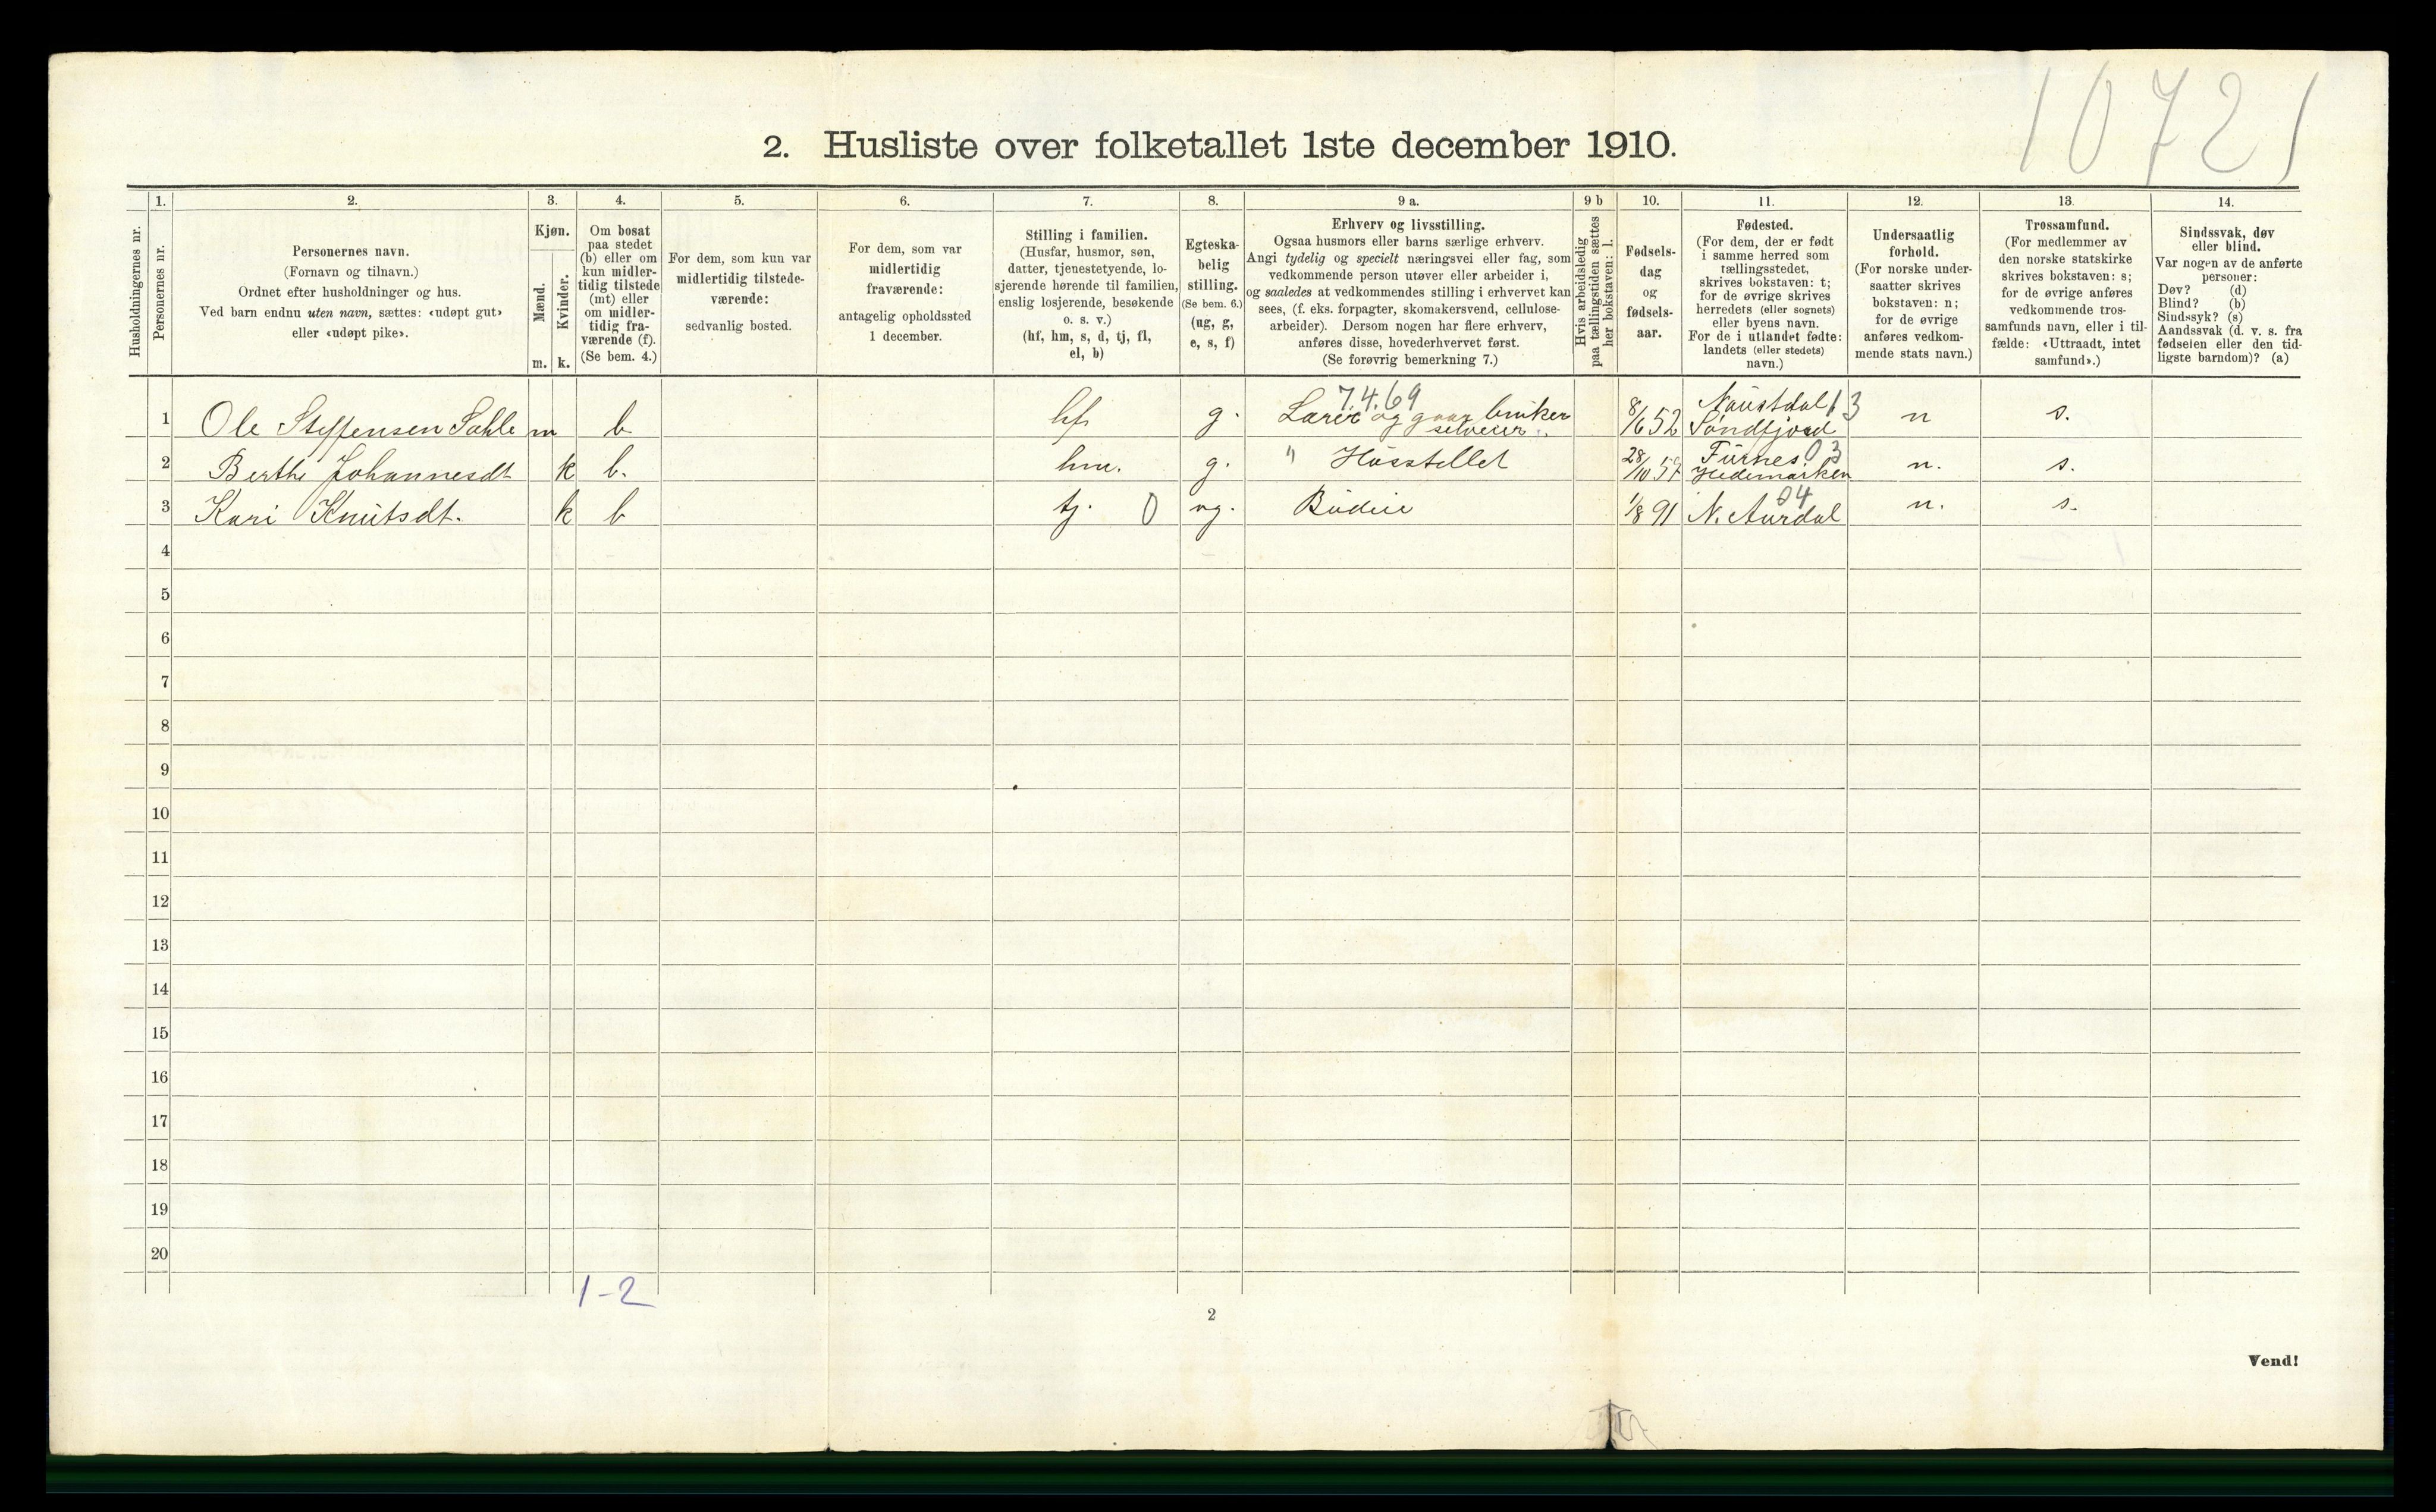 10721
2. Husliste over folketallet 1ste december 1910.
Husholdningernes nr.
1.
Personernes nr.
2.
Personernes navn.
(Fornavn og tilnavn.)
Ordnet efter husholdninger og hus.
Ved barn endnu uten navn, sættes: «udøpt gut»
eller «udøpt pike».
3.
Kjøn.
Mænd.
Kvinder.
m. k.
4.
Om bosat
paa stedet
(b) eller om
kun midler-
tidig tilstede
(mt) eller
om midler-
tidig fra-
værende (f).
(Se bem. 4.)
5.
For dem, som kun var
midlertidig tilstede-
værende:
sedvanlig bosted.
6.
For dem, som var
midlertidig
fraværende:
antagelig opholdssted
1 december.
7.
Stilling i familien.
(Husfar, husmor, søn,
datter, tjenestetyende, lo-
sjerende hørende til familien,
enslig losjerende, besøkende
o. s. v.)
(hf, hm, s, d, tj, fl,
el, b)
8.
Egteska-
belig
stilling.
(Se bem. 6.)
(ug, g,
e, s, f)
9 a.
Erhverv og livsstilling.
Ogsaa husmors eller barns særlige erhverv.
Angi tydelig og specielt næringsvei eller fag, som
vedkommende person utøver eller arbeider i,
og saaledes at vedkommendes stilling i erhvervet kan
sees, (f. eks. forpagter, skomakersvend, cellulose-
arbeider). Dersom nogen har flere erhverv,
anføres disse, hovederhvervet først.
(Se forøvrig bemerkning 7.)
9 b
Hvis arbeidsledig
paa tællingstiden sættes
her bokstaven: l.
10.
Fødsels-
dag
og
fødsels-
aar.
11.
Fødested.
(For dem, der er født
i samme herred som
tællingsstedet,
skrives bokstaven: t;
for de øvrige skrives
herredets (eller sognets)
eller byens navn.
For de i utlandet fødte:
landets (eller stedets)
navn.)
12.
Undersaatlig
forhold.
(For norske under-
saatter skrives
bokstaven: n;
for de øvrige
anføres vedkom-
mende stats navn.)
13.
Trossamfund.
(For medlemmer av
den norske statskirke
skrives bokstaven: s;
for de øvrige anføres
vedkommende tros-
samfunds navn, eller i til-
fælde: «Uttraadt, intet
samfund».)
14.
Sindssvak, døv
eller blind.
Var nogen av de anførte
personer:
Døv? (d)
Blind? (b)
Sindssyk? (s)
Aandssvak (d. v. s. fra
fødselen eller den tid-
ligste barndom)? (a)
7.4.69 Naustdal 13
1 Ole Steffensen m b hf g. Lærer og gaarbruker 8/6 52 Söndfjord n s.
selveier
Furnes 03
2 Berthe Johannesdt k b. hm. g. " Husstellet 28/10 Hedemarken n. s.
04
3 Kari Knutsdt. k b tj. 0 ug. Budeie 1/8 91 N. Aurdal n. s.
4
5
6
7
8
9
10
11
12
13
14
15
16
17
18
19
20
1-2
2
Vend!